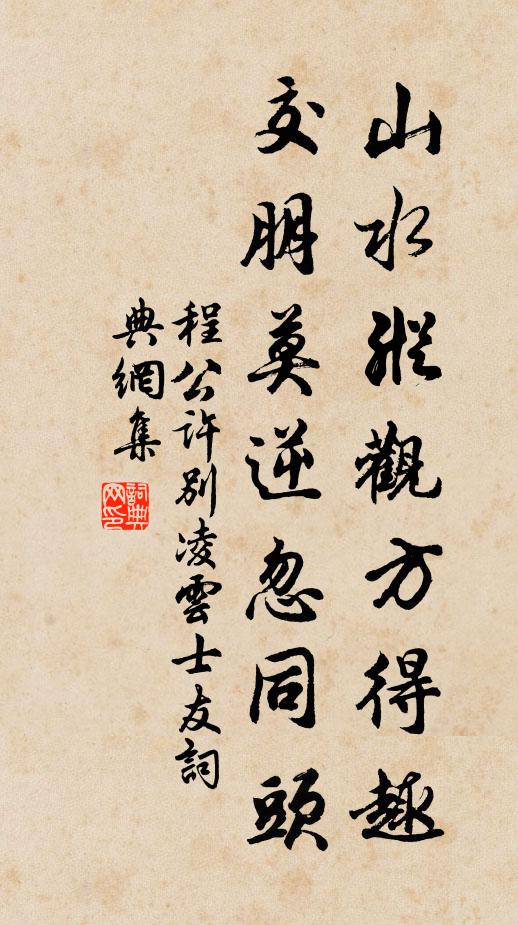 山水縱觀方得趣
交朋莫逆忽同頭
程公許別凌雲士友詞
典網集
詞典网印